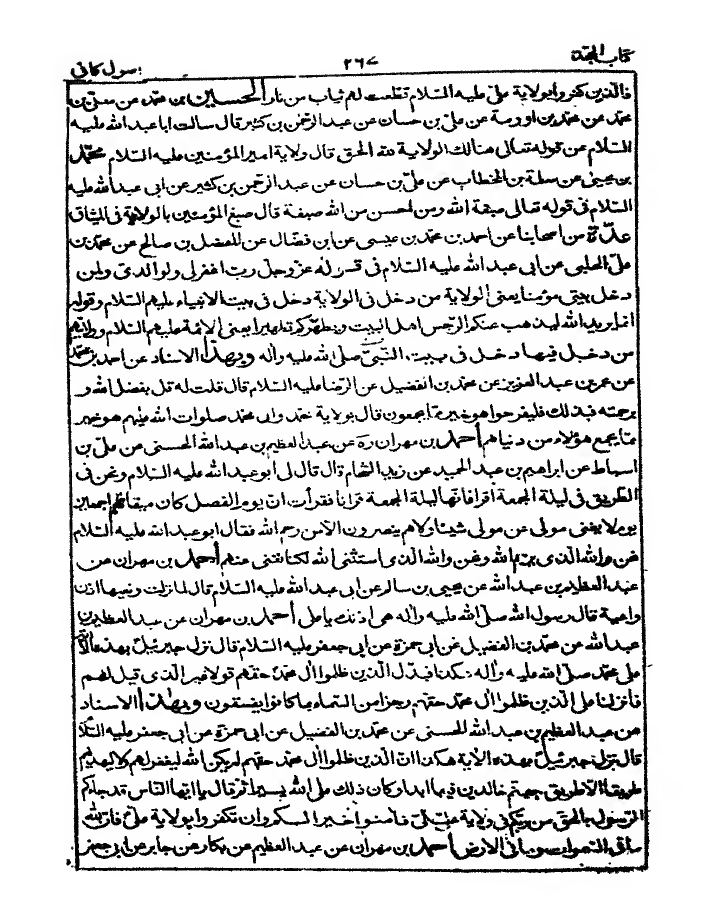 كتاب الحجة ٢٦٧ اصول كافى
فالذين كفروا بولاية على عليه السلام قطعت لهم ثياب من نار الحسين بن محمد عن معلى بن
محمد عن محمد بن اورمة عن على بن حسان عن عبد الرحمن بن كثير قال سالت ابا عبد الله عليه
السلام عن قوله تعالى هنالك الولاية لله الحق قال ولاية امير المؤمنين عليه السلام محمد
بن يحيى عن سلمة بن الخطاب عن على بن حسان عن عبد الرحمن بن كثير عن ابى عبد الله عليه
السلام فى قوله تعالى صبغة الله ومن احسن من الله صبغة قال صبغ المؤمنين بالولاية فى الميثاق
عدة من اصحابنا عن احمد بن محمد بن عيسى عن ابن فضال عن المفضل بن صالح عن محمد بن
على الحلبى عن ابى عبد الله عليه السلام فى قوله عز وجل رب اغفر لى ولوالدى ولمن
دخل بيتى مؤمنا يعنى الولاية من دخل فى الولاية دخل فى بيت الانبياء عليهم السلام وقوله
انما يريد الله ليذهب عنكم الرجس اهل البيت ويطهركم تطهيرا يعنى الائمة عليهم السلام وولايتهم
من دخل فيها دخل فى بيت النبى صلى الله عليه واله وبهذا الاسناد عن احمد بن محمد
عن عمر بن عبد العزيز عن محمد بن الفضيل عن الرضا عليه السلام قال قلت له قل بفضل الله و
برحمته فبذلك فليفرحوا هو خير مما يجمعون قال بولاية محمد وال محمد صلوات الله عليهم هو خير
مما يجمع هؤلاء من دنياهم احمد بن مهران ره عن عبد العظيم بن عبد الله الحسنى عن على بن
اسباط عن ابراهيم بن عبد الحميد عن زيد الشحام قال قال لى ابو عبد الله عليه السلام ونحن فى
الطريق فى ليلة الجمعة اقرا فانها ليلة الجمعة قرانا فقرأت ان يوم الفصل كان ميقاتهم اجمعين
يوم لا يغنى مولى عن مولى شيئا ولا هم ينصرون الا من رحم الله فقال ابو عبد الله عليه السلام
نحن والله الذى يرحم الله ونحن والله الذى استثنى الله لكنا نغنى عنهم احمد بن مهران عن
عبد العظيم بن عبد الله عن يحيى بن سالم عن ابى عبد الله عليه السلام قال لما نزلت وتعيها اذن
واعية قال رسول الله صلى الله عليه واله هى اذنك يا على احمد بن مهران عن عبد العظيم بن
عبد الله عن محمد بن الفضيل عن ابى حمزة عن ابى جعفر عليه السلام قال نزل جبرئيل بهذه الاية
على محمد صلى الله عليه واله هكذا فبدل الذين ظلموا ال محمد حقهم قولا غير الذى قيل لهم
فانزلنا على الذين ظلموا ال محمد حقهم رجزا من السماء بما كانوا يفسقون وبهذا الاسناد
عن عبد العظيم بن عبد الله الحسنى عن محمد بن الفضيل عن ابى حمزة عن ابى جعفر عليه السلام
قال نزل جبرئيل بهذه الاية هكذا ان الذين ظلموا ال محمد حقهم لم يكن الله ليغفر لهم ولا ليهديهم
طريقا الا طريق جهنم خالدين فيها ابدا وكان ذلك على الله يسيرا ثم قال يا ايها الناس قد جاءكم
الرسول بالحق من ربكم فى ولاية على فامنوا خيرا لكم وان تكفروا بولاية على فان لله
ما فى السموات وما فى الارض احمد بن مهران عن عبد العظيم عن بكار عن جابر عن ابى جعفر